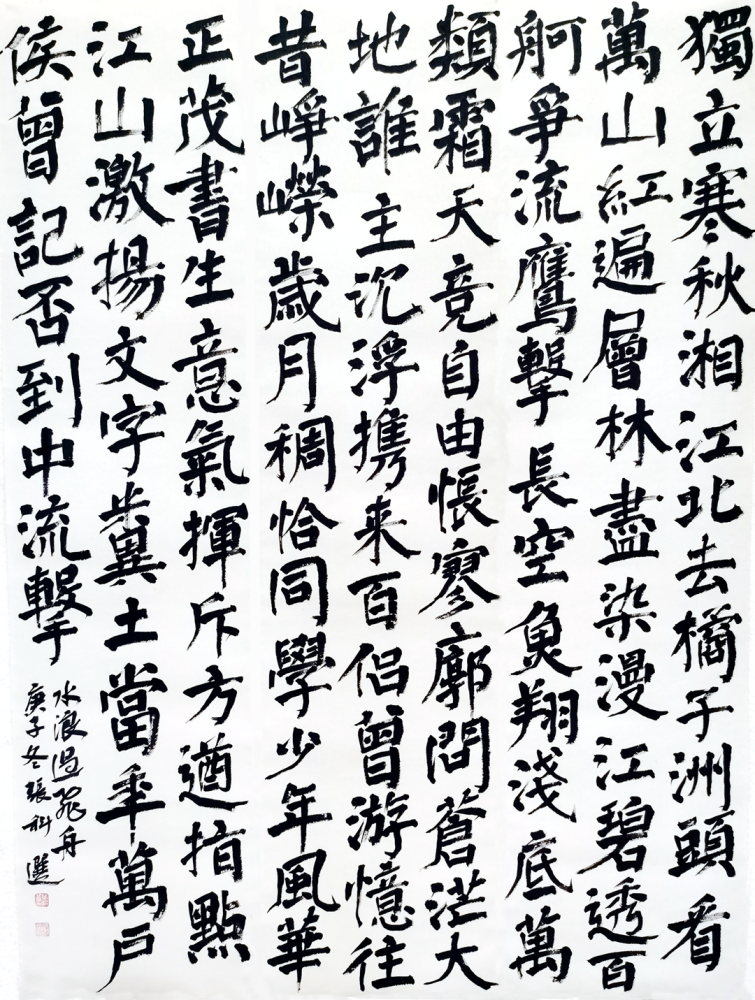 獨立寒秋湘江北去橘子洲頭看
萬山紅遍層林盡染漫江碧透百
舸爭流鷹擊長空魚翔淺底萬
類霜天竟自由悵寥廓問蒼茫大
地誰主沉浮携来百侣曾游憶往
昔崢嶸歲月稠恰同學少年風華
正茂書生意氣揮斥方遒指點
江山激揚文字糞土當年萬戶
侯曾記否到中流擊
水浪遏飛舟
庚子冬張科選